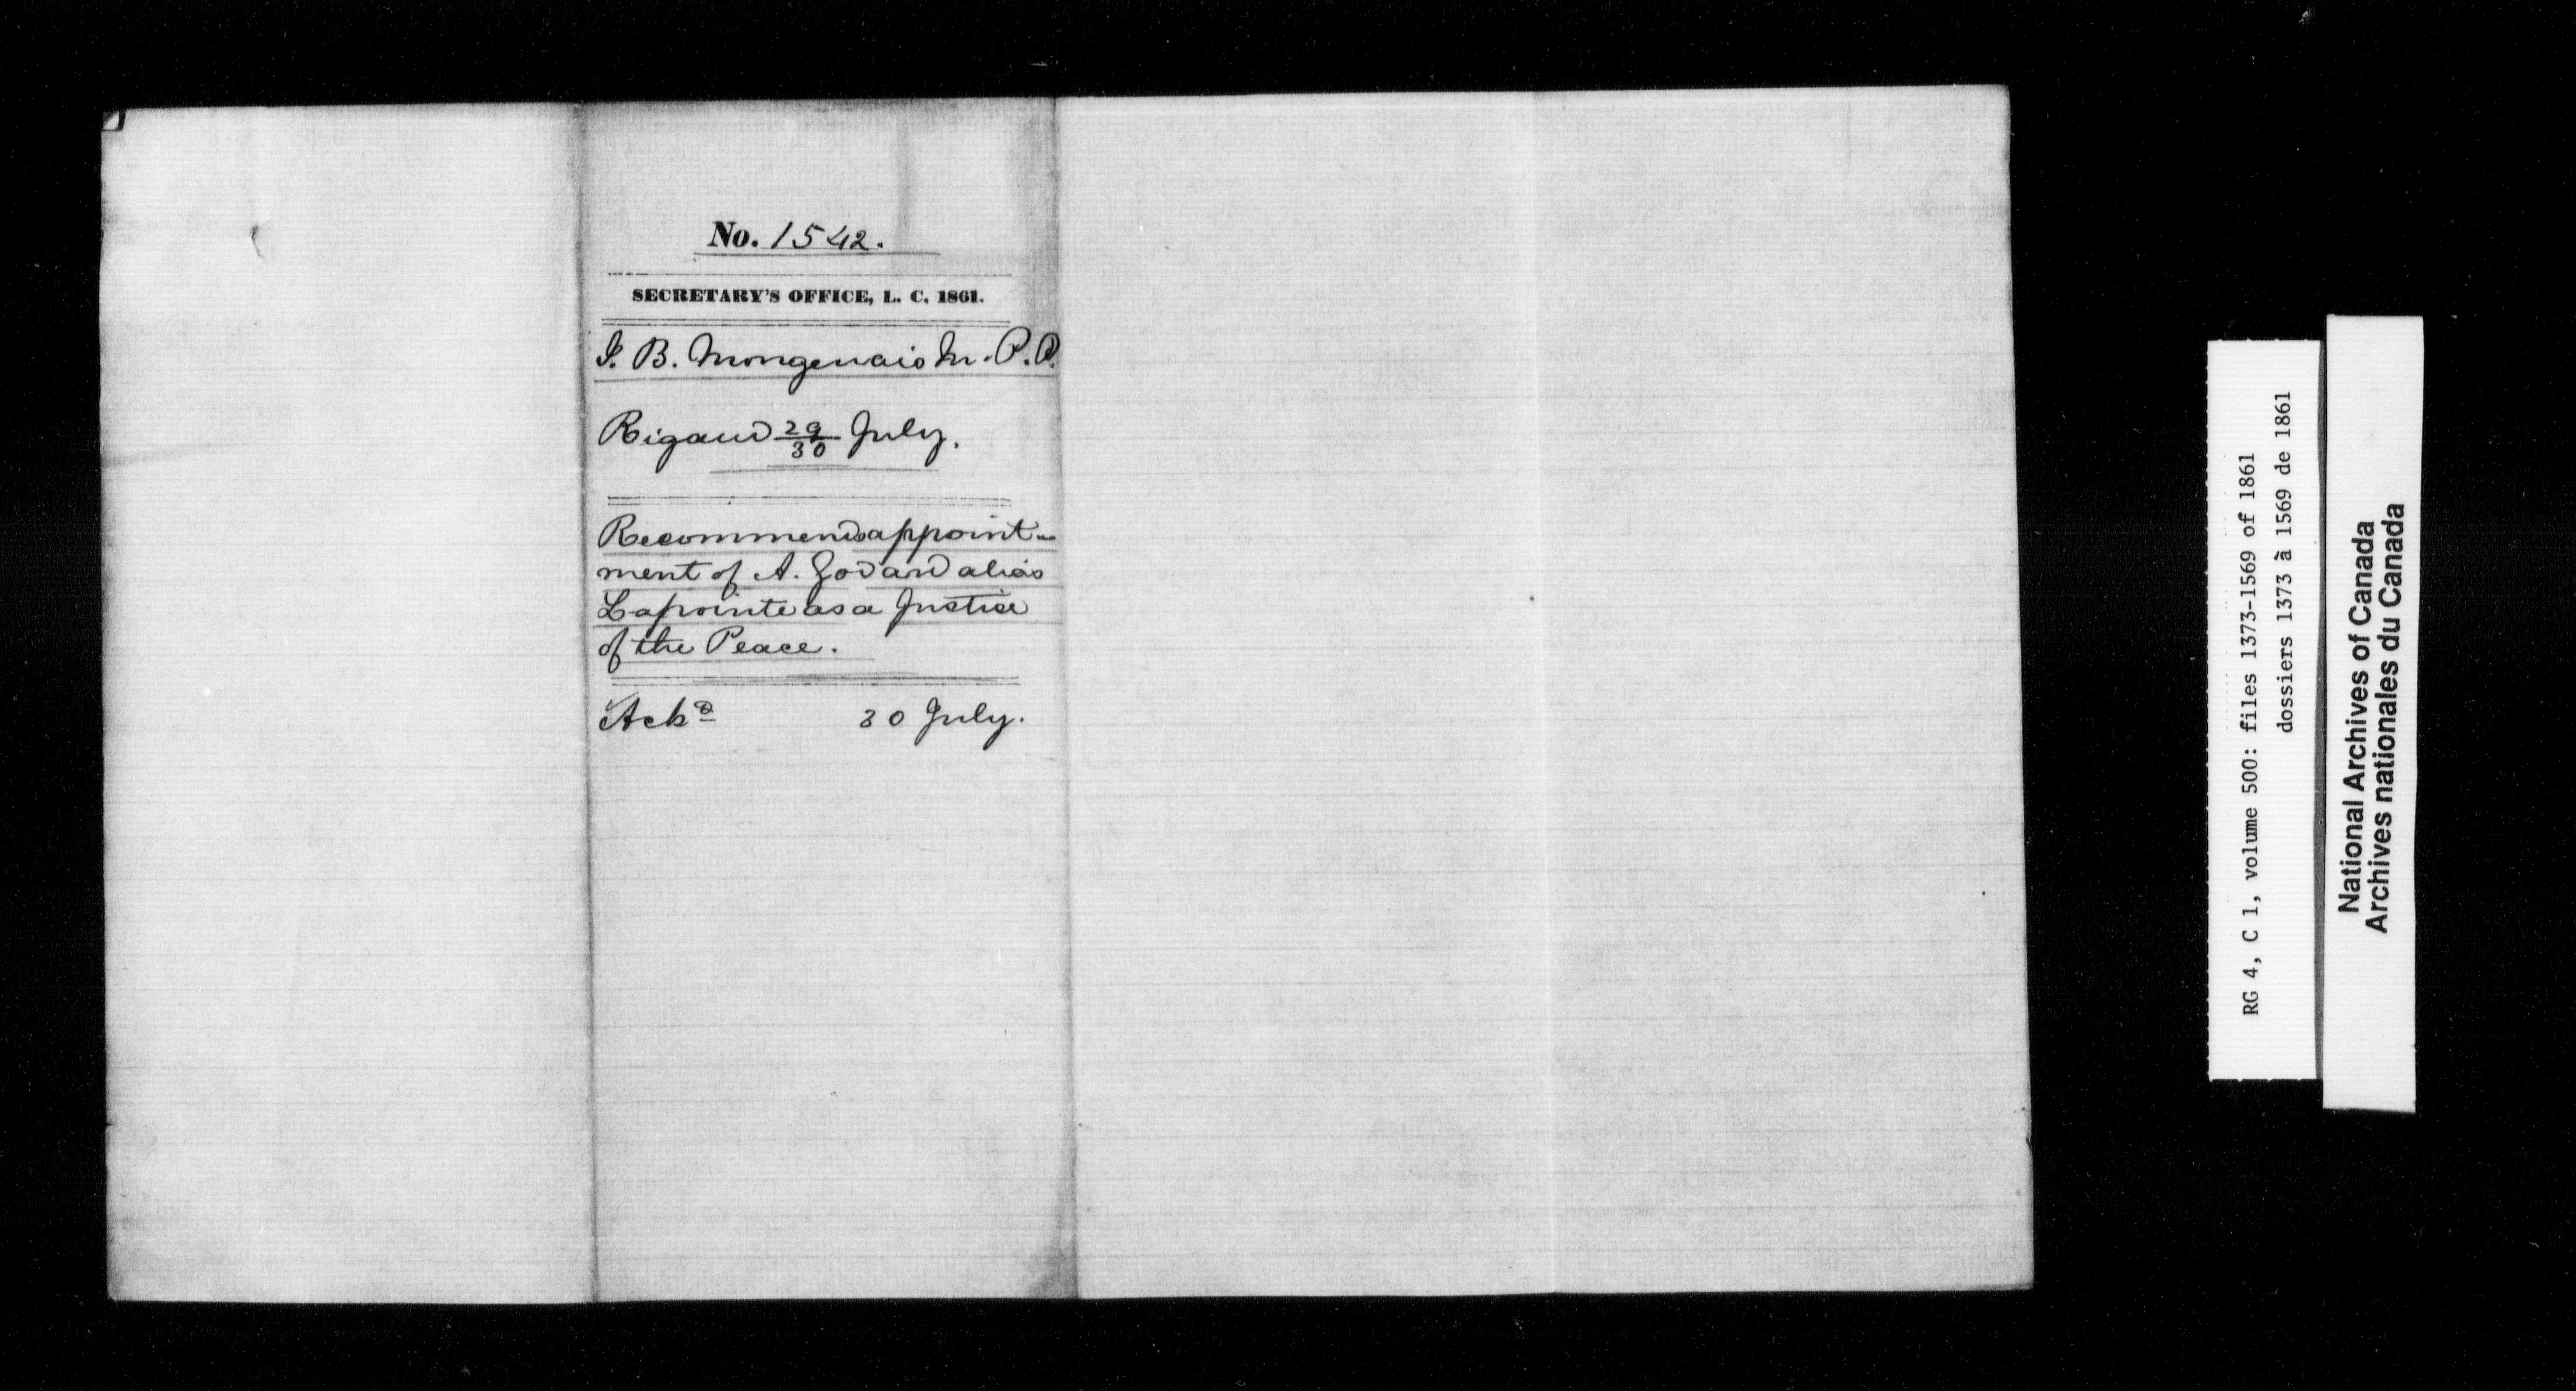 No. 1542.
SECRETARY'S OFFICE, L. C. 1861.
J. B. Mongenais M. P. P.
Rigaud 29/30 July.
Recommends appoint-
ment of A. Godard alias
Lapointe as a Justice
of the Peace.
Ackd 30 July.
RG 4, C 1, volume 500: files 1373-1569 of 1861
dossiers 1373 à 1569 de 1861
National Archives of Canada
Archives nationales du Canada